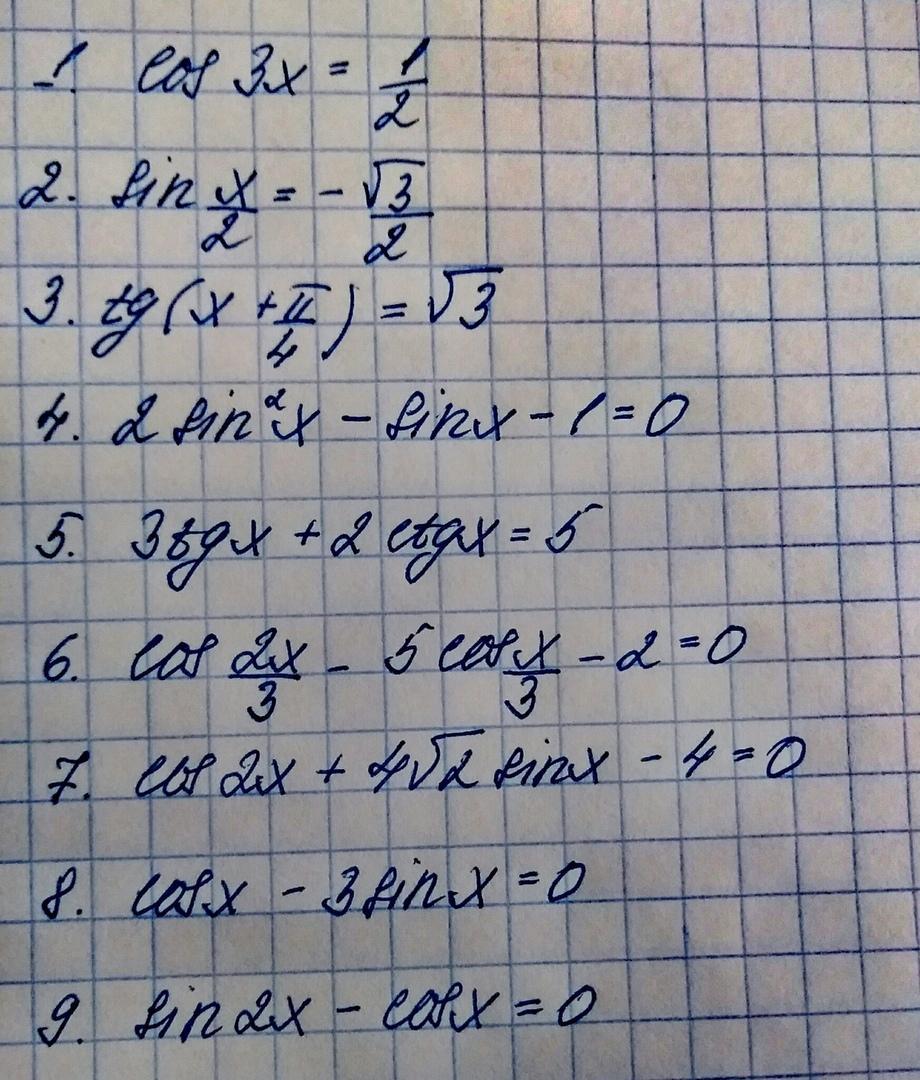 1. cos 3x = 1/2
2. sin x/2 = - √3/2
3. tg(x + π/4) = √3
4. 2 sin²x - sinx - 1 = 0
5. 3tgx + 2 ctgx = 5
6. cos 2x/3 - 5 cos x/3 - 2 = 0
7. cos 2x + 4√2 sinx - 4 = 0
8. cosx - 3 sinx = 0
9. sin2x - cosx = 0